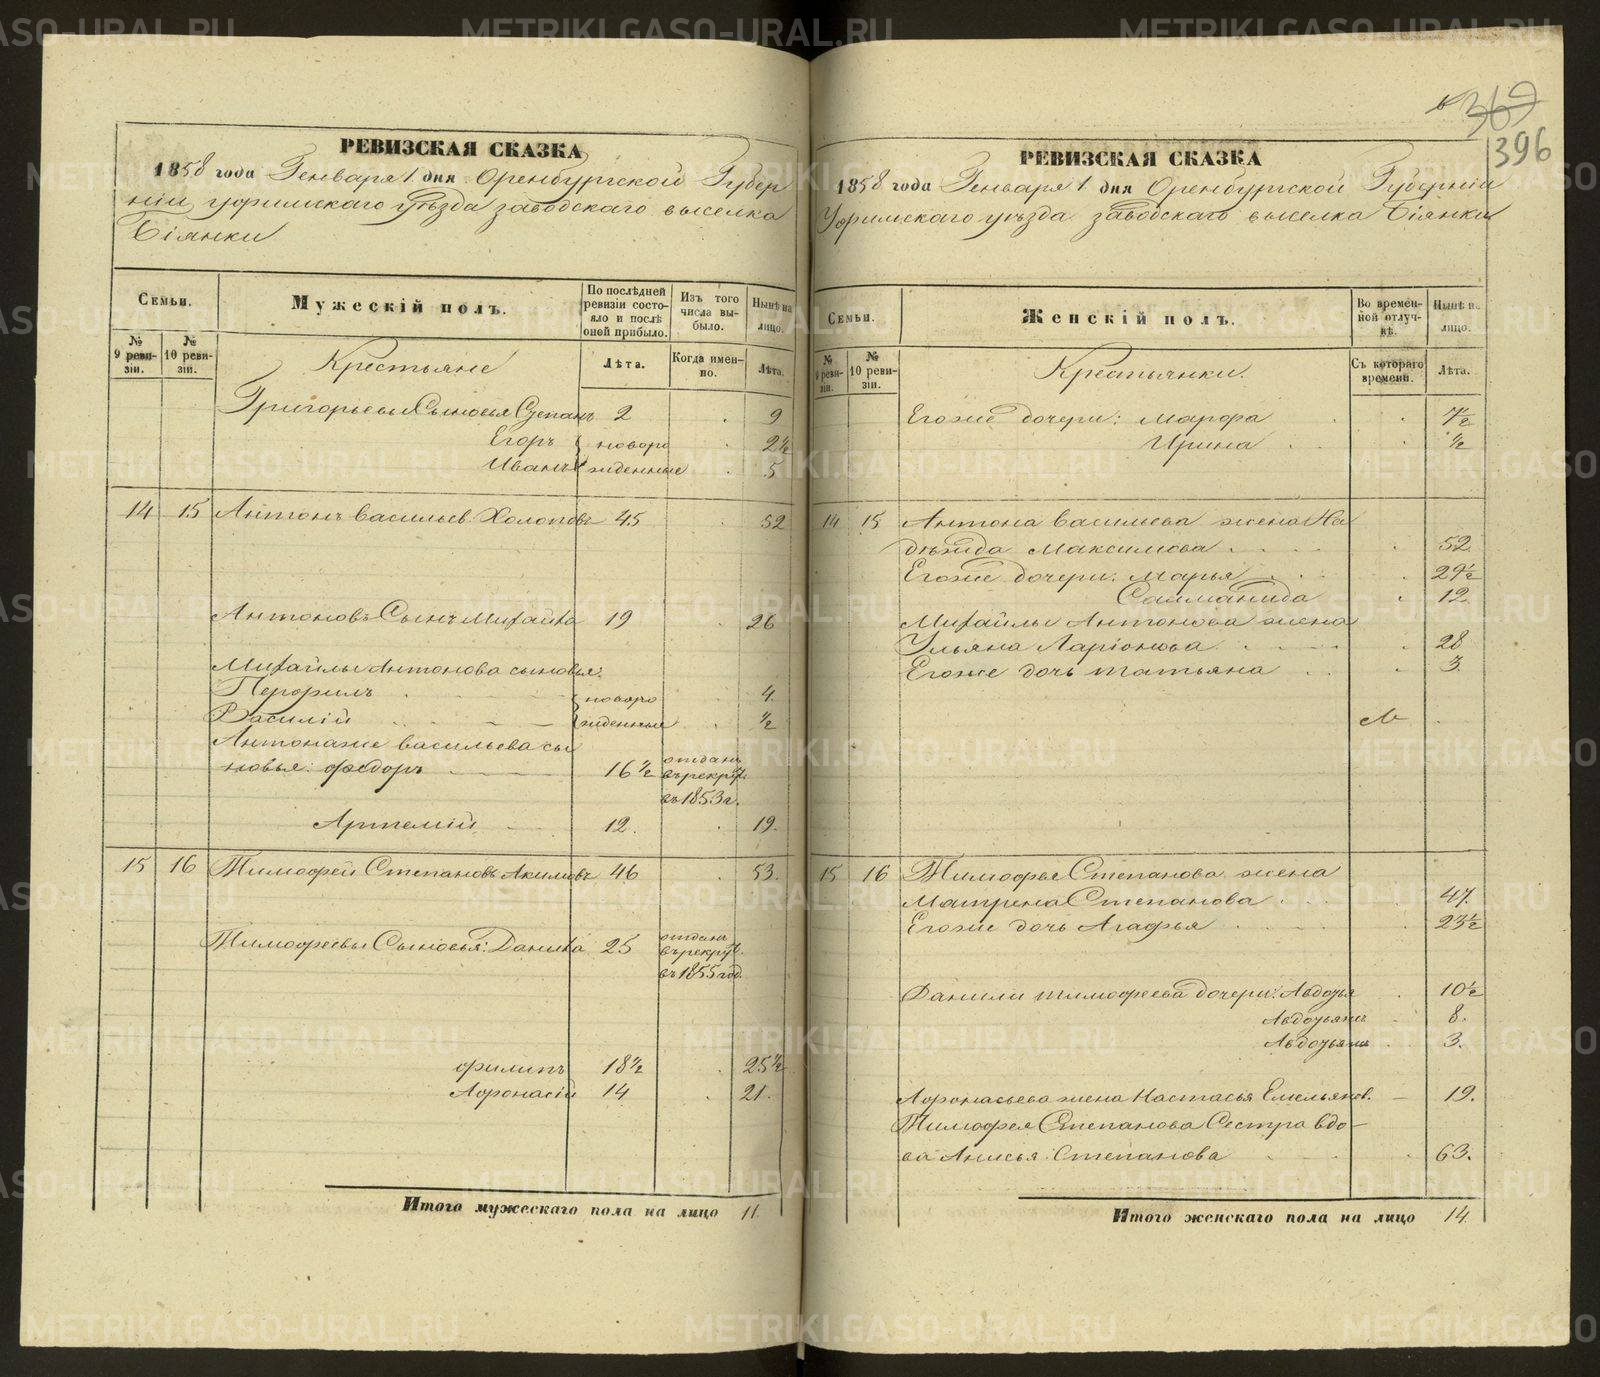 369
396
РЕВИЗСКАЯ СКАЗКА
1858 года Генваря 1. дня Оренбургской Губер
ніи уфимскаго уѣзда заводскаго выселка
Біянки
Семьи.
Мужескій полъ.
По послѣдней ревизіи состояло и послѣ оней прибыло.
Изъ того числа выбыло.
Нынѣ на лицо.
№ 9 ревизіи.
№ 10 ревизіи.
Крестьяне
Лѣта.
Когда именно.
Лѣта.
Григорьевы Сыновья Степанъ 2 9
Егоръ новоро 2½
Иванъ жденные 5
14 15 Антонъ Васильев Холоповъ 45 52
Антоновъ Сынъ Михайла 19 26
Михайлы Антонова сыновья:
Перфилъ новоро 4.
Василій жденные ½
Антонаже Васильева сы
новья: Федоръ 16½ отданъ въ рекрут. въ 1853 г.
Артемій 12. 19.
15 16 Тимофей Степановъ Акимовъ 46 53.
Тимофеевы Сыновья: Данила 25 отданъ въ рекрут. въ 1855 год.
филипъ 18½ 25½
Афонасій 14 21.
Итого мужескаго пола на лицо 11.
РЕВИЗСКАЯ СКАЗКА
1858 года Генваря 1. дня Оренбургской Губерніи
Уфимскаго уѣзда заводскаго выселка Біянки
Семьи.
Женскій полъ.
Во временной отлучкѣ.
Нынѣ на лицо.
№ 9 ревизіи.
№ 10 ревизіи.
Крестьянки.
Съ котораго времени.
Лѣта.
Егоже дочери: Марфа 7½
Ирина ½
14 15 Антона Васильева жена На
дѣжда Максимова 52
Егоже дочери: Марья 29½
12.
Михайлы Антонова жена
Ульяна Ларіонова 28
Егоже дочь Татьяна 3.
15 16 Тимофея Степанова жена
Матрена Степанова 47.
Егоже дочь Агафья 23½
Данилы Тимофеева дочери: Авдотья 10½
8.
3.
Афонасьева жена Настасья Емельянов. 19.
Тимофея Степанова Сестра вдо-
ва Анисья Степанова 63.
Итого женскаго пола на лицо 14.
METRIKI.GASO-URAL.RU